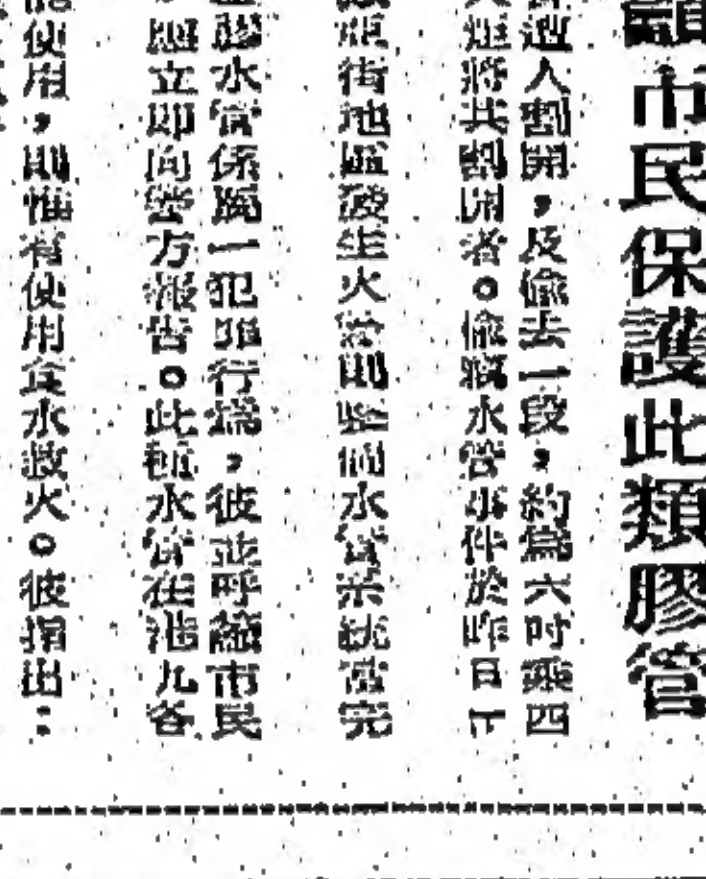 籲市民保護此類膠管
遭人割開，及偷去一段，約為六吋乘四
將其割開者。偷竊水管事件於昨日下
街地區發生火警則整個水管系統當完
膠水管係屬一犯罪行為，彼並呼籲市民
應立即向警方報告。此種水管在港九各
使用，則惟有使用食水救火。彼指出：